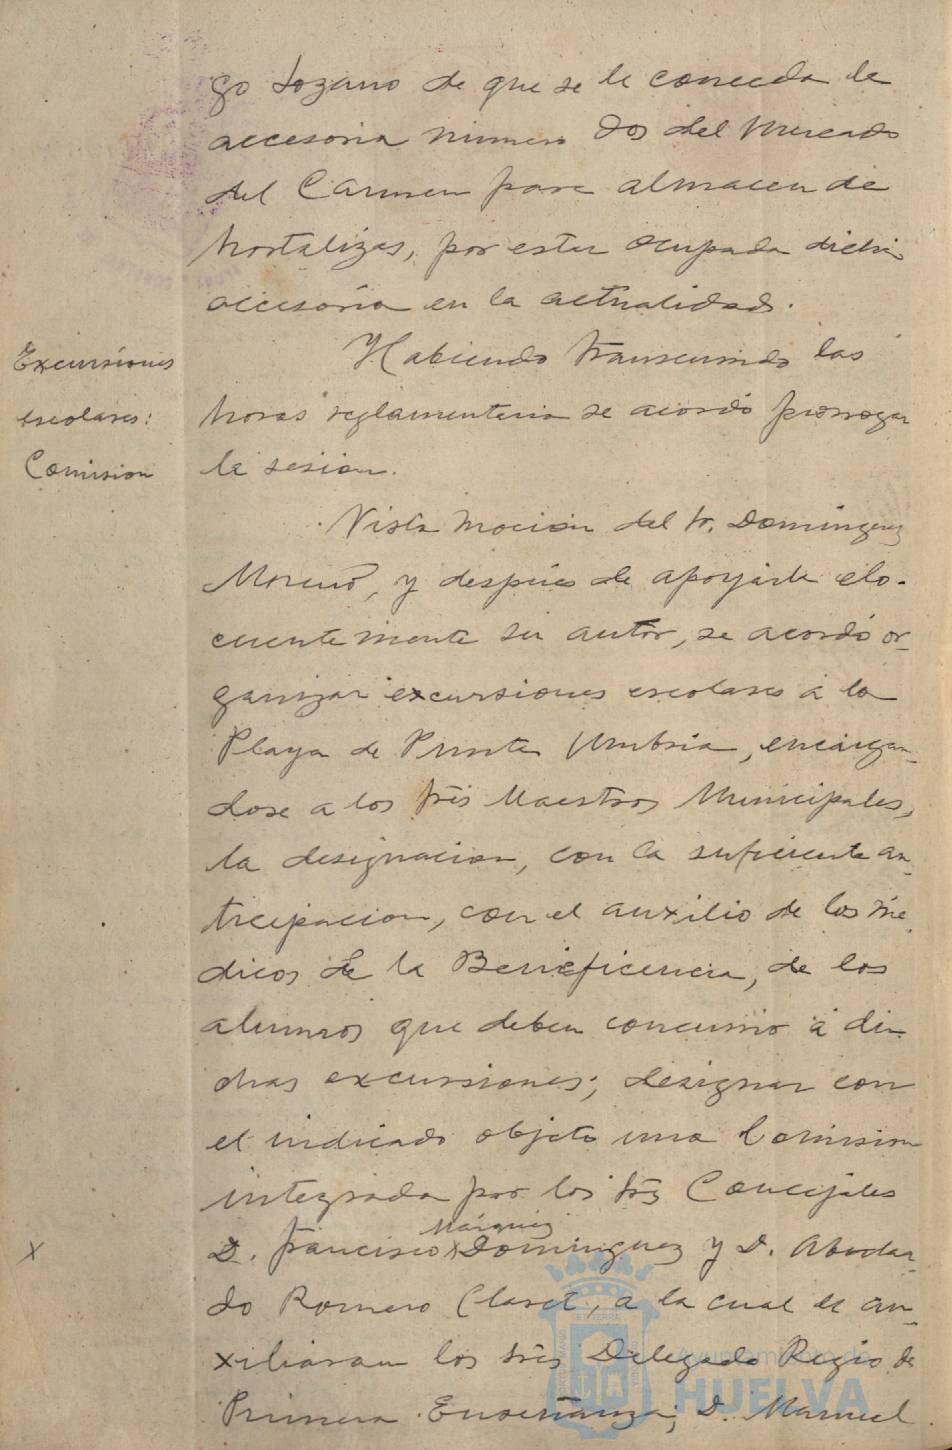 go Lozano de que se le conceda la
accesoria numero dos del Mercado
del Carmen para almacen de
hortalizas, por estar ocupada dicha
accesoria en la actualidad.
Excursiones
escolares:
Comision
Habiendo transcurrido las
horas reglamentarias se acordó prorrogar
la sesion.
Vista mocion del Sr. Domínguez
Moreno, y despues de apoyarla elo-
cuentemente su autor, se acordó or-
ganizar excursiones escolares á la
Playa de Punta Umbria, encargan-
dose a los Sres Maestros Municipales,
la designacion, con la suficiente an-
ticipacion, con el auxilio de los mé-
dicos de la Beneficencia, de los
alumnos que deben concurrir á di-
chas excursiones; designar con
el indicado objeto una Comision
integrada por los Sres Concejales
Márquez
X D. Francisco X Dominguez y D. Abelar-
do Romero Claret, a la cual le au-
xiliaran los Sres Delegado Regio de
Primera Enseñanza, D. Manuel
Ayuntamiento de
HUELVA